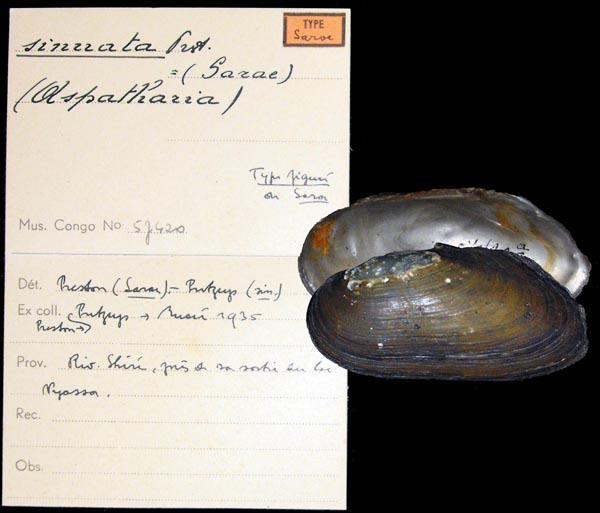 TYPE
Sarae
sinuata Prt.
= (Sarae)
(Aspatharia)
Type figuré
de Sarae
Mus. Congo No
Dét. Preston (Sarae) – Putzeys (sin.)
Ex coll. Putzeys → Musée 1935
Preston →
Prov. Riv. Shiré, près de sa sortie du lac
Nyassa.
Rec.
Obs.